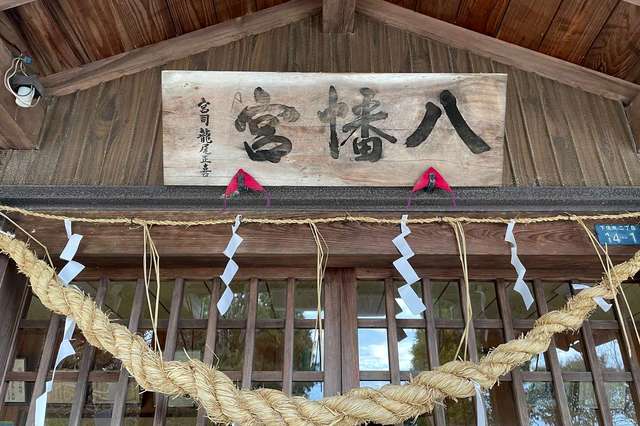 八幡宮
宮司 龍尾正喜
14-1